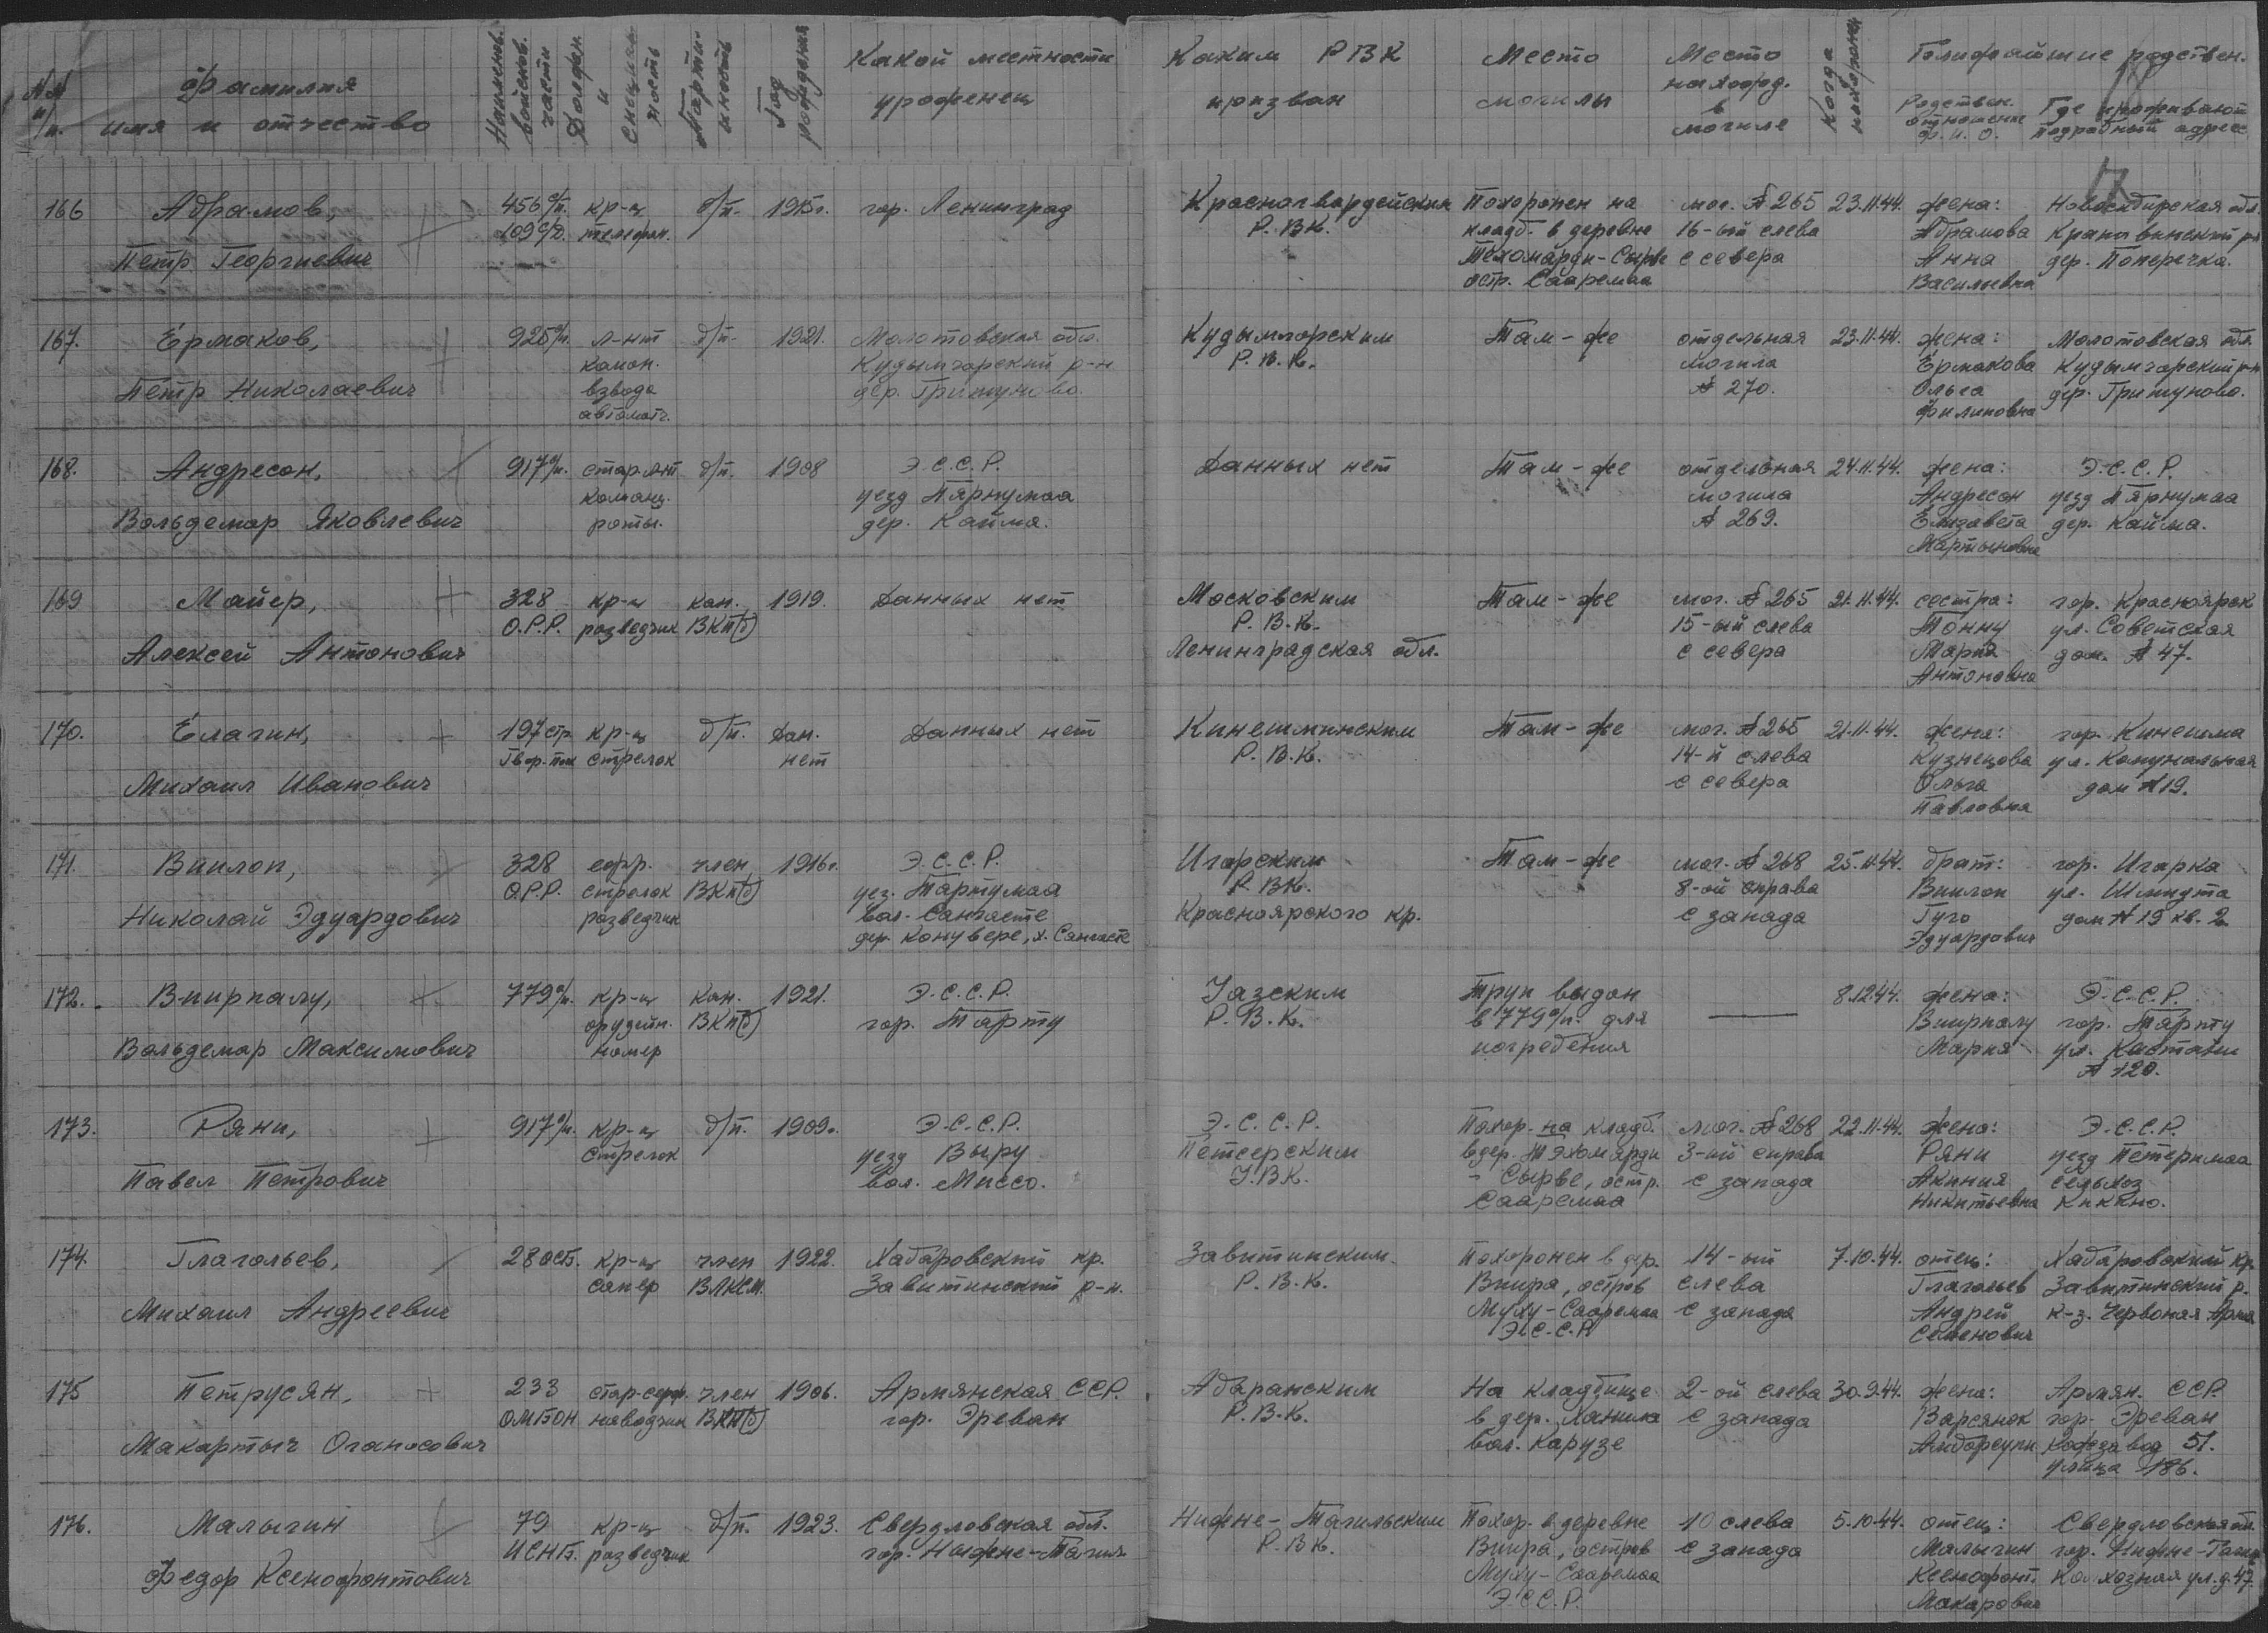 №№ п/п.
Фамилия имя и отчество
Наименов. войсков. части
Должн. и специальность
Партийность
Год рождения
Какой местности уроженец
Каким РВК призван
Место могилы
Место нахожд. в могиле
Когда похоронен
Ближайшие родствен.
Родствен. отношение ф.и.о.
Где проживают подробный адрес
17
166 Абрамов, 456 с/п. кр-ц б/п. 1915г. гор. Ленинград Красногвардейским Похоронен на мог. № 265 23.11.44. жена: Новосибирская обл.
109 с/д. телефон. Р.ВК. кладб. в деревне 16-ый слева Абрамова Крапивинский р-н
Петр Георгиевич Техомарди-Сырве с севера Анна дер. Поперечка.
остр. Сааремаа Васильевна
167. Ермаков, 925 с/п. л-нт б/п. 1921. Молотовская обл. Кудымкорским Там-же отдельная 23.11.44. жена: Молотовская обл.
коман. Кудымкорский р-н Р.В.К. могила Ермакова Кудымкорский р-н
Петр Николаевич взвода дер. Тришуново. № 270. Ольга дер. Тришуново.
автомат. Филиповна
168. Андресон, 917 с/п. стар. л-нт б/п. 1908 Э.С.С.Р. Данных нет Там-же отдельная 24.11.44. жена: Э.С.С.Р.
команд. уезд Пярнумаа могила Андресон уезд Пярнумаа
Вольдемар Яковлевич роты. дер. Кайма. № 269. Елизавета дер. Кайма.
Мартыновна
169 Майер, 328 кр-ц кан. 1919. Данных нет Московским Там-же мог. № 265 21.11.44. сестра: гор. Красноярск
О.Р.Р. разведчик ВКП(б) Р.В.К. 15-ый слева Тонну ул. Советская
Алексей Антонович Ленинградская обл. с севера Мария дом. № 47.
Антоновна
170. Елагин, 197 стр. кр-ц б/п. Дан. Данных нет Кинешминским Там-же мог. № 265 21.11.44. жена: гор. Кинешма
стрелок нет Р.В.К. 14-й слева Кузнецова ул. Комунальная
Михаил Иванович с севера Ольга дом № 19.
Павловна
171. Виилоп, 328 ефр. член 1916г. Э.С.С.Р. Игарским Там-же мог. № 268 25.11.44. брат: гор. Игарка
О.Р.Р. стрелок ВКП(б) уез. Тартумаа Р.ВК. 8-ой справа Виилоп ул. Шмидта
Николай Эдуардович разведчик вол. Сангасте Красноярского кр. с запада Гуго дом № 19 кв. 2
дер. Конувере, х. Сангасте Эдуардович
172. Виирпалу, 779 а/п. кр-ц кан. 1921. Э.С.С.Р. Р.В.К. Труп выдан — 8.12.44. жена: Э.С.С.Р.
орудийн. ВКП(б) гор. Тарту в 779 а/п. для Виирпалу гор. Тарту
Вольдемар Максимович номер погребения Мария ул. Кастани
№ 120.
173. Ряни, 917 с/п. кр-ц б/п. 1909г. Э.С.С.Р. Э.С.С.Р. Похор. на кладб. мог. № 268 22.11.44. жена: Э.С.С.Р.
стрелок уезд Выру Петсерским в дер. Тэхомарди 3-ий справа Ряни уезд Петеримаа
Павел Петрович вол. Миссо. У.ВК. - Сырве, остр. с запада Акиния сельхоз
Сааремаа Никитьевна Киккно.
174. Глагольев, 28 осб. кр-ц член 1922. Хабаровский кр. Завитинским Похоронен в дер. 14-ый 7.10.44. отец: Хабаровский кр.
сапер ВЛКСМ. Завитинский р-н. Р.В.К. Виира, остров слева Глагольев Завитинский р.
Михаил Андреевич Муху-Сааремаа с запада Андрей к-з. Червоная Армия
Э.С.С.Р. Семенович
175 Петрусян, 233 стар. серж. член 1906. Армянская ССР. Абаранским На кладбище 2-ой слева 30.9.44. жена: Армян. ССР.
ОМБОН наводчик ВКП(б) гор. Эреван Р.В.К. в дер. Ханила с запада Варсянок гор. Эреван
Макартыч Оганосович вол. Карузе Кожзавод 51.
улица 186.
176. Малыгин 79 кр-ц б/п. 1923. Свердловская обл. Нижне-Тагильским Похор. в деревне 10 слева 5.10.44. отец: Свердловская обл.
ИСНБ. разведчик гор. Нижне-Тагил Р.ВК. Виира, остров с запада Малыгин гор. Нижне-Тагил
Федор Ксенофонтович Муху-Сааремаа Ксенофонт. Колхозная ул. д. 47.
Э.С.С.Р. Макарович